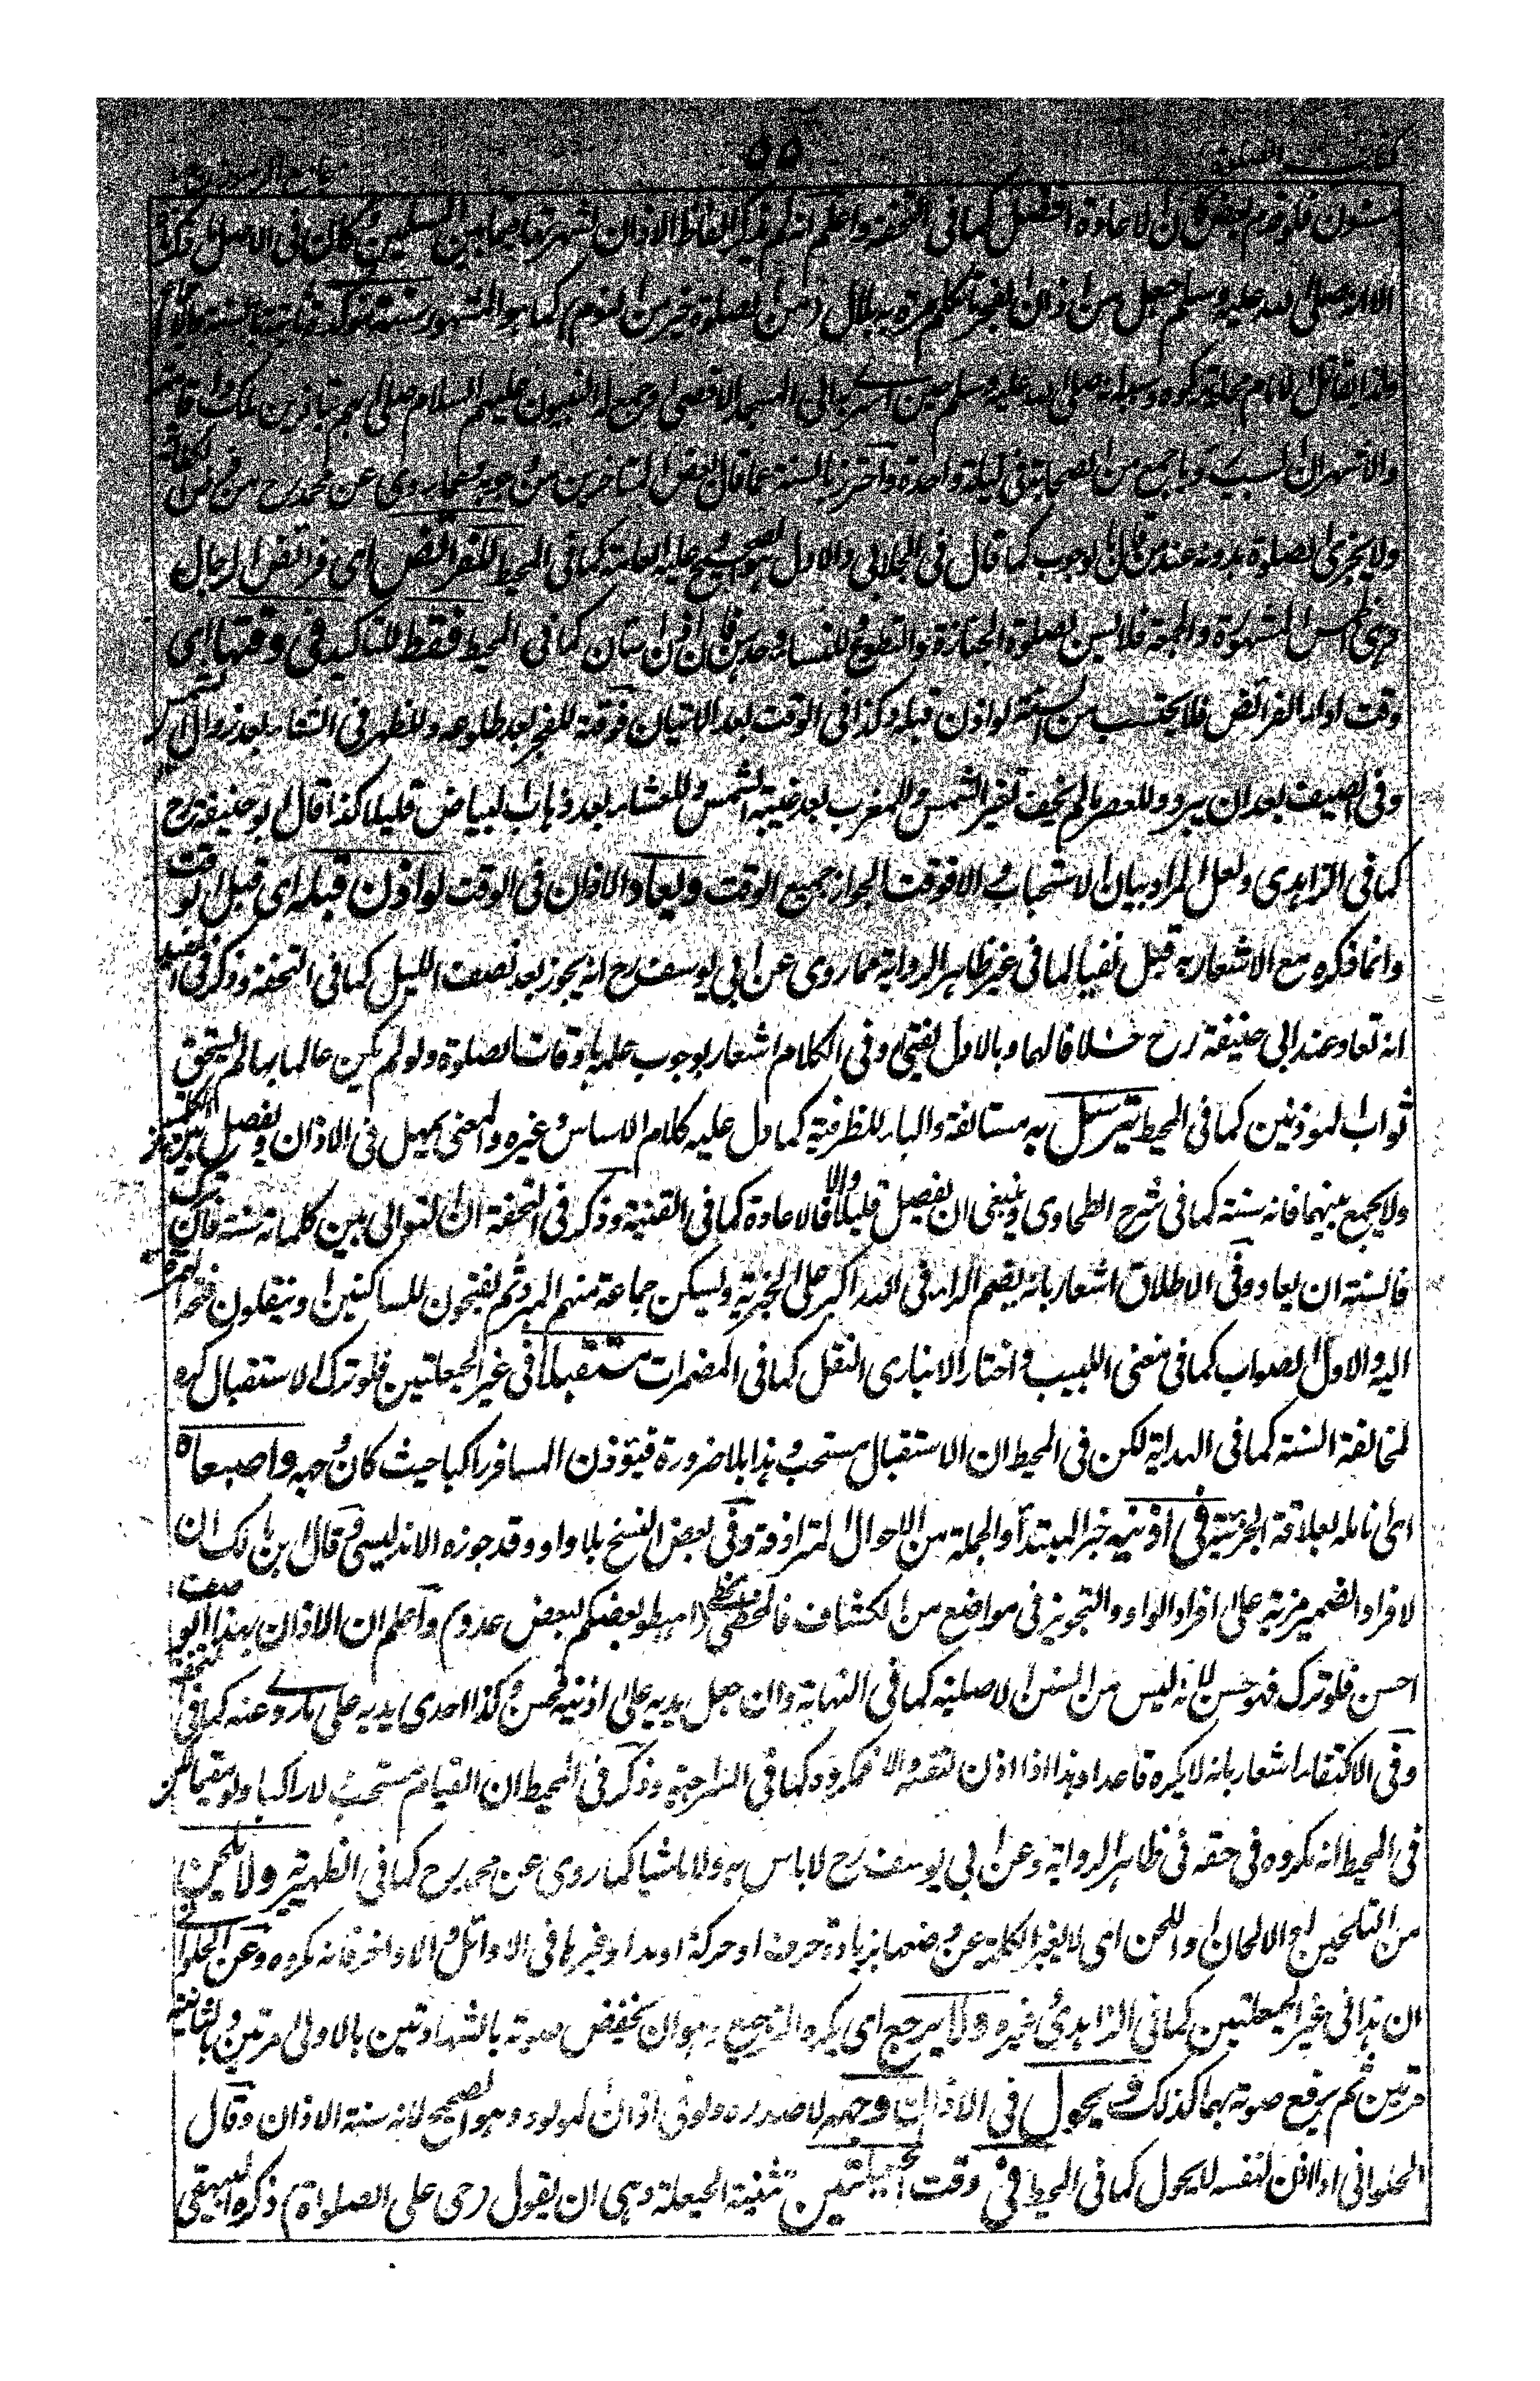 كتاب الصلوة ٥٥ جامع الرموز
مسنون فلو قدم بعض كان الاعادة افضل كما فى التحفة واعلم انه لم يذكر الفاظ الاذان لشهرتها فيما بين المسلمين وكان فى الاصل
الا انه صلى الله عليه وسلم جعل من اذان الفجر تكلم مرة به بلال رض من (الصلوة خير من النوم) كما هو المشهور سنة مؤكدة
صلى الله عليه وسلم حين اسرى الى المسجد الاقصى وجمع له النبيون عليهم السلام صلى بهم باذين ملك واقامته
والاشهر ان السبب رؤيا جمع من الصحابة فى ليلة واحدة واحترز بالسنة عما قال بعض المتاخرين من وجوبه وعما روى عن محمد رح من فرض الكفاية
ولا يجزئ الصلوة بدونه عند من قال بالوجوب كما قال فى الجلابى والاول هو الصحيح عليه العامة كما فى المحيط للفرائض اى فرائض الرجال
وهى الخمس المشهورة والجمعة فلا يسن لصلوة الجنازة والتطوع وللنساء وحدهن فان اذن اسأن كما فى المحيط فقط للتاكيد فى وقتها اى
وقت اداء الفرائض فلا يحتسب من السنة لو اذن قبله وكذا فى الوقت بعد الاتيان فوقته للفجر بعد طلوعه وللظهر فى الشتاء بعد زوال الشمس
وفى الصيف بعد ان يبرد وللعصر ما لم يخف تغير الشمس وللمغرب بعد غيبة الشمس وللعشاء بعد ذهاب البياض قليلا كذا قال ابو حنيفة رح
كما فى الزاهدى ولعل المراد بيان الاستحباب والا فوقت الجواز جميع الوقت ويعاد الاذان فى الوقت لو اذن قبله اى قبل الوقت
وانما ذكره مع الاشعار به قبل نفيا لما فى غير ظاهر الرواية عما روى عن ابى يوسف رح انه يجوز بعد نصف الليل كما فى التحفة وذكر فى
انه تعاد عند ابى حنيفة رح خلافا لهما وبالاول يفتى وفى الكلام اشعار بوجوب علمه باوقات الصلوة ولو لم يكن عالما بها لم يستحق
ثواب المؤذنين كما فى المحيط يترسل به مستانفة والباء للظرفية كما دل عليه كلام الاساس وغيره والمعنى يمهل فى الاذان ويفصل بين الكلمتين
ولا يجمع بينهما فانه سنة كما فى شرح الطحاوى وينبغى ان يفصل قليلا والا فالاعادة كما فى القنية وذكر فى التحفة ان التوالى بين كلماته سنة فان ترك
فالسنة ان يعاد وفى الاطلاق اشعار بانه يضم الراء فى الله اكبر على الخبرية ويسكن جماعة منهم المبرد ثم يفتحون للساكنين او ينقلون فتحة الهمزة
اليه والاول الصواب كما فى مغنى اللبيب واختار الانبارى النقل كما فى المضمرات مستقبلا فى غير الحيعلتين فلو ترك الاستقبال كره
لمخالفة السنة كما فى الهداية لكن فى المحيط ان الاستقبال مستحب وهذا بلا ضرورة فيؤذن المسافر راكبا حيث كان وجهه واصبعاه
اى انامله بعلاقة الجزئية فى اذنيه خبر المبتدأ والجملة من الاحوال المترادفة وفى بعض النسخ بلا واو وقد جوزه الاندليسى وقال ابن مالك ان
لافراد الضمير مزية على افراد الواو والتجويز فى مواضع من الكشاف فالمخطئ مخطئ (اهبطوا بعضكم لبعض عدو) واعلم ان الاذان بهذا الوصف
احسن فلو ترك فهو حسن لانه ليس من السنن الاصلية كما فى النهاية وان جعل يديه على اذنيه فحسن وكذا احدى يديه على ما روى عنه كما فى التحفة
وفى الاكتفاء اشعار بانه لا يكره قاعدا وهذا اذا اذن لنفسه والا فمكروه كما فى السراجية وذكر فى المحيط ان القيام مستحب لا راكبا ولو مقيما لكن
فى المحيط انه مكروه فى حقه فى ظاهر الرواية وعن ابى يوسف رح لا باس به ولا ماشيا كما روى عن محمد رح كما فى الظهيرية ولا يلحن
من التلحين او الالحان او اللحن اى لا يغير الكلمة عن وضعها بزيادة حرف او حركة او مد او غيرها فى الاوائل والاواخر فانه مكروه وعن الحلوانى
ان هذا فى غير الحيعلتين كما فى الزاهدى وغيره ولا يرجع اى يكره الترجيع وهو ان يخفض صوته بالشهادتين بالاولى مرتين وبالثانية
مرتين ثم يرفع صوته بهما كذلك ويحول فى الاذان وجهه لا صدره ولو فى اذان المولود وهو الصحيح لانه سنة الاذان وقال
الحلوانى اذا اذن لنفسه لا يحول كما فى المحيط فى وقت الحيعلتين تثنية الحيعلة وهى ان يقول (حى على الصلواة) ذكره البيهقى